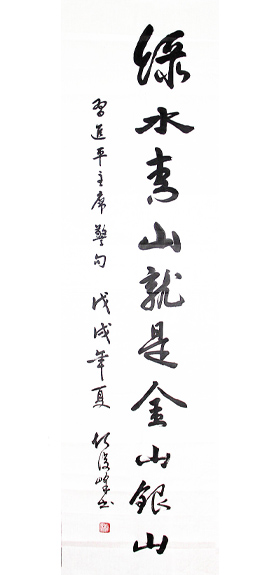 綠水青山就是金山銀山
習近平主席警句 戊戌年夏 俊峰书